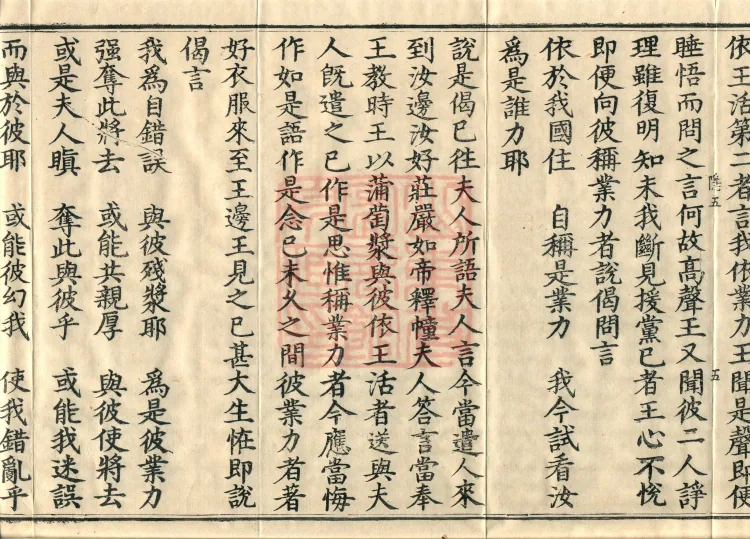 依王活第二者言我依業力王聞是聲即便
睡悟而問之言何故高聲王又聞彼二人諍
理雖復明知未我斷見援黨己者王心不悅
即便向彼稱業力者說偈問言
依於我國住　自稱是業力　我今試看汝
為是誰力耶
說是偈已往夫人所語夫人言今當遣人來
到汝邊汝好莊嚴如帝釋幢夫人答言當奉
王教時王以蒲萄漿與彼依王活者送與夫
人既遣之已作是思惟稱業力者今應當悔
作如是語作是念已未久之間彼業力者著
好衣服來至王邊王見之已甚大生恠即說
偈言
我為自錯誤　與彼殘漿耶　為是彼業力
强奪此將去　或能共親厚　與彼使將去
或是夫人瞋　奪此與彼乎　或能我迷誤
而與於彼耶　或能彼幻我　使我錯亂乎
隱五
五